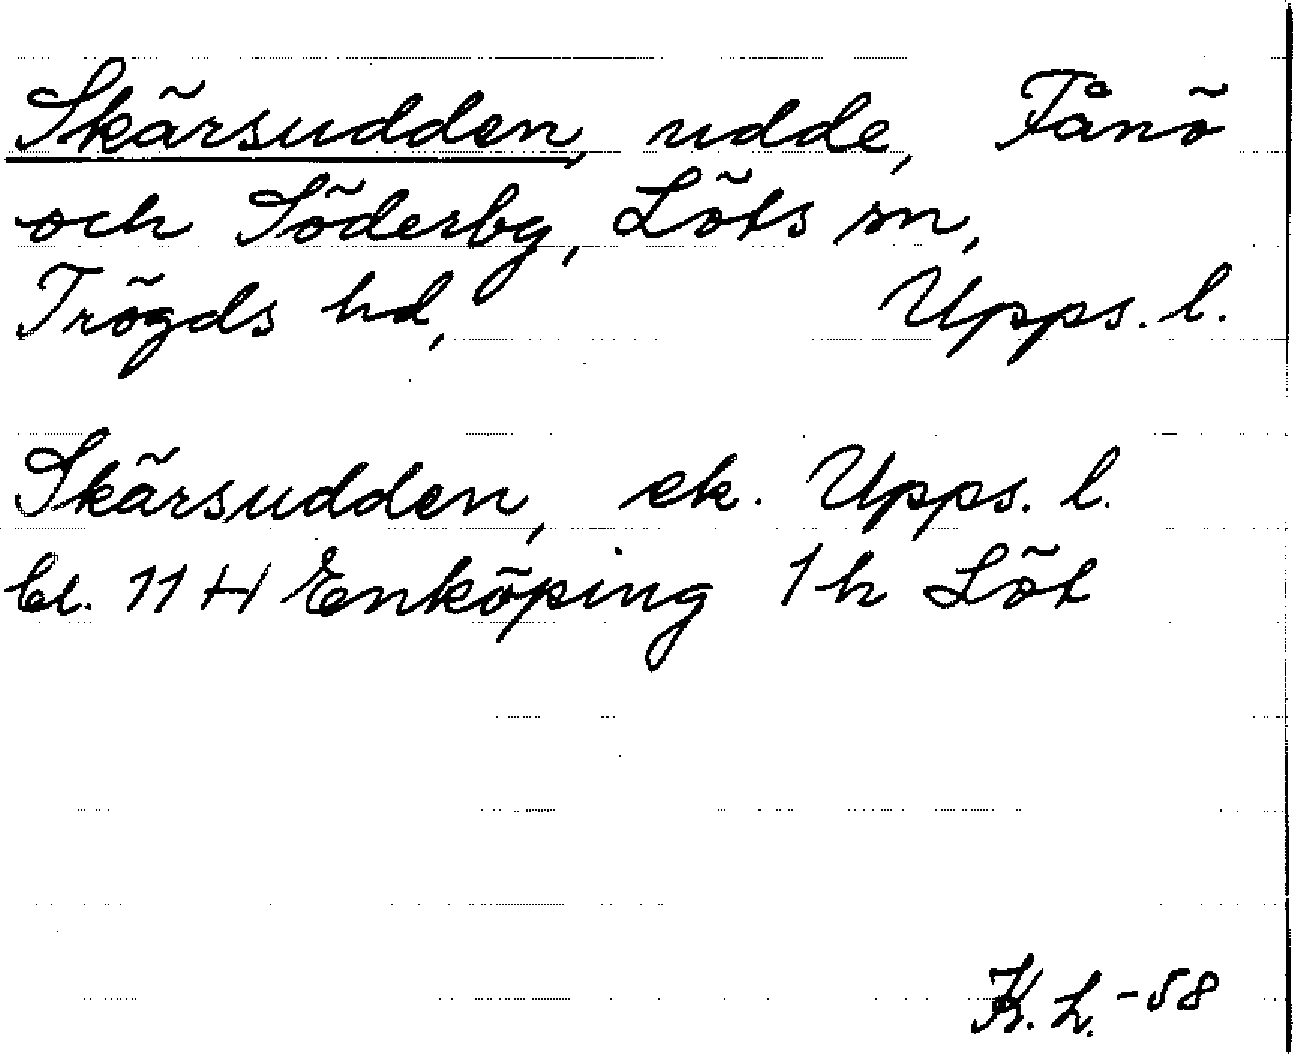 Skärsudden, udde, Fånö
och Söderby, Löts sn,
Trögds hd, Upps. l.
Skärsudden, ek. Upps. l.
bl. 11 H Enköping 1 h Löt
K. L. -58